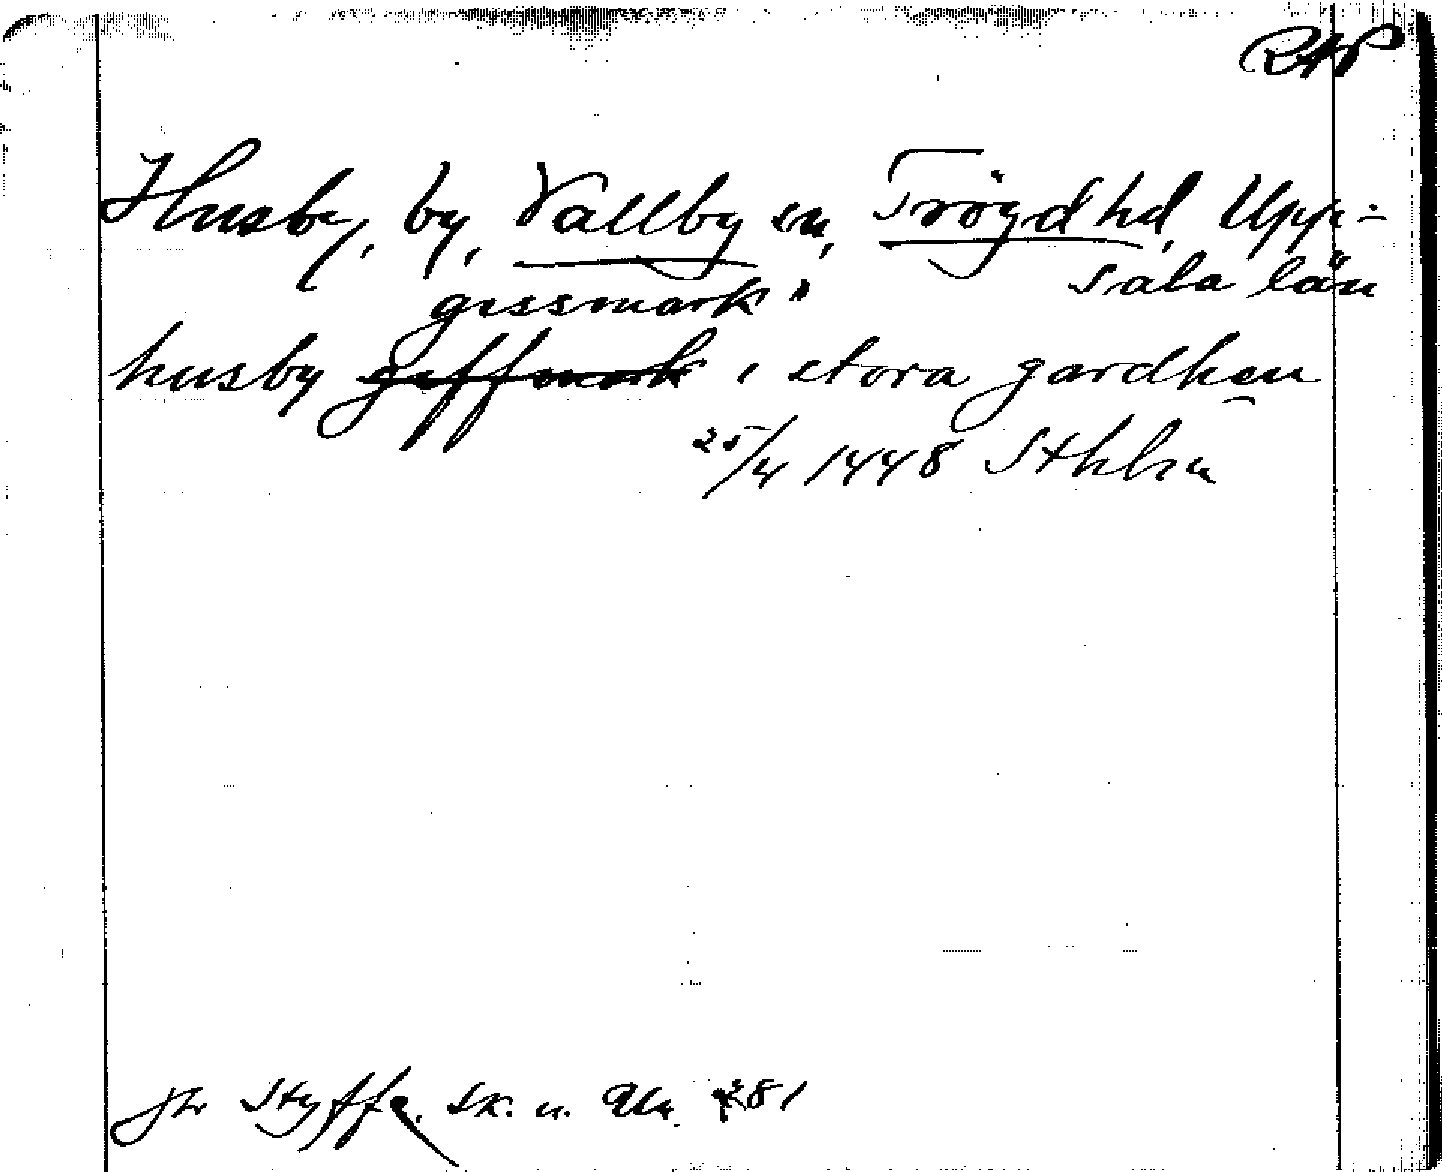 RAP
Husby, by, Vallby sn, Trögd hd, Upp-
sala län
gissmark"
husby giffmark i stora gardhen
25/4 1448 Sthlm
Jfr Styffe. Sk. u. Un. 281